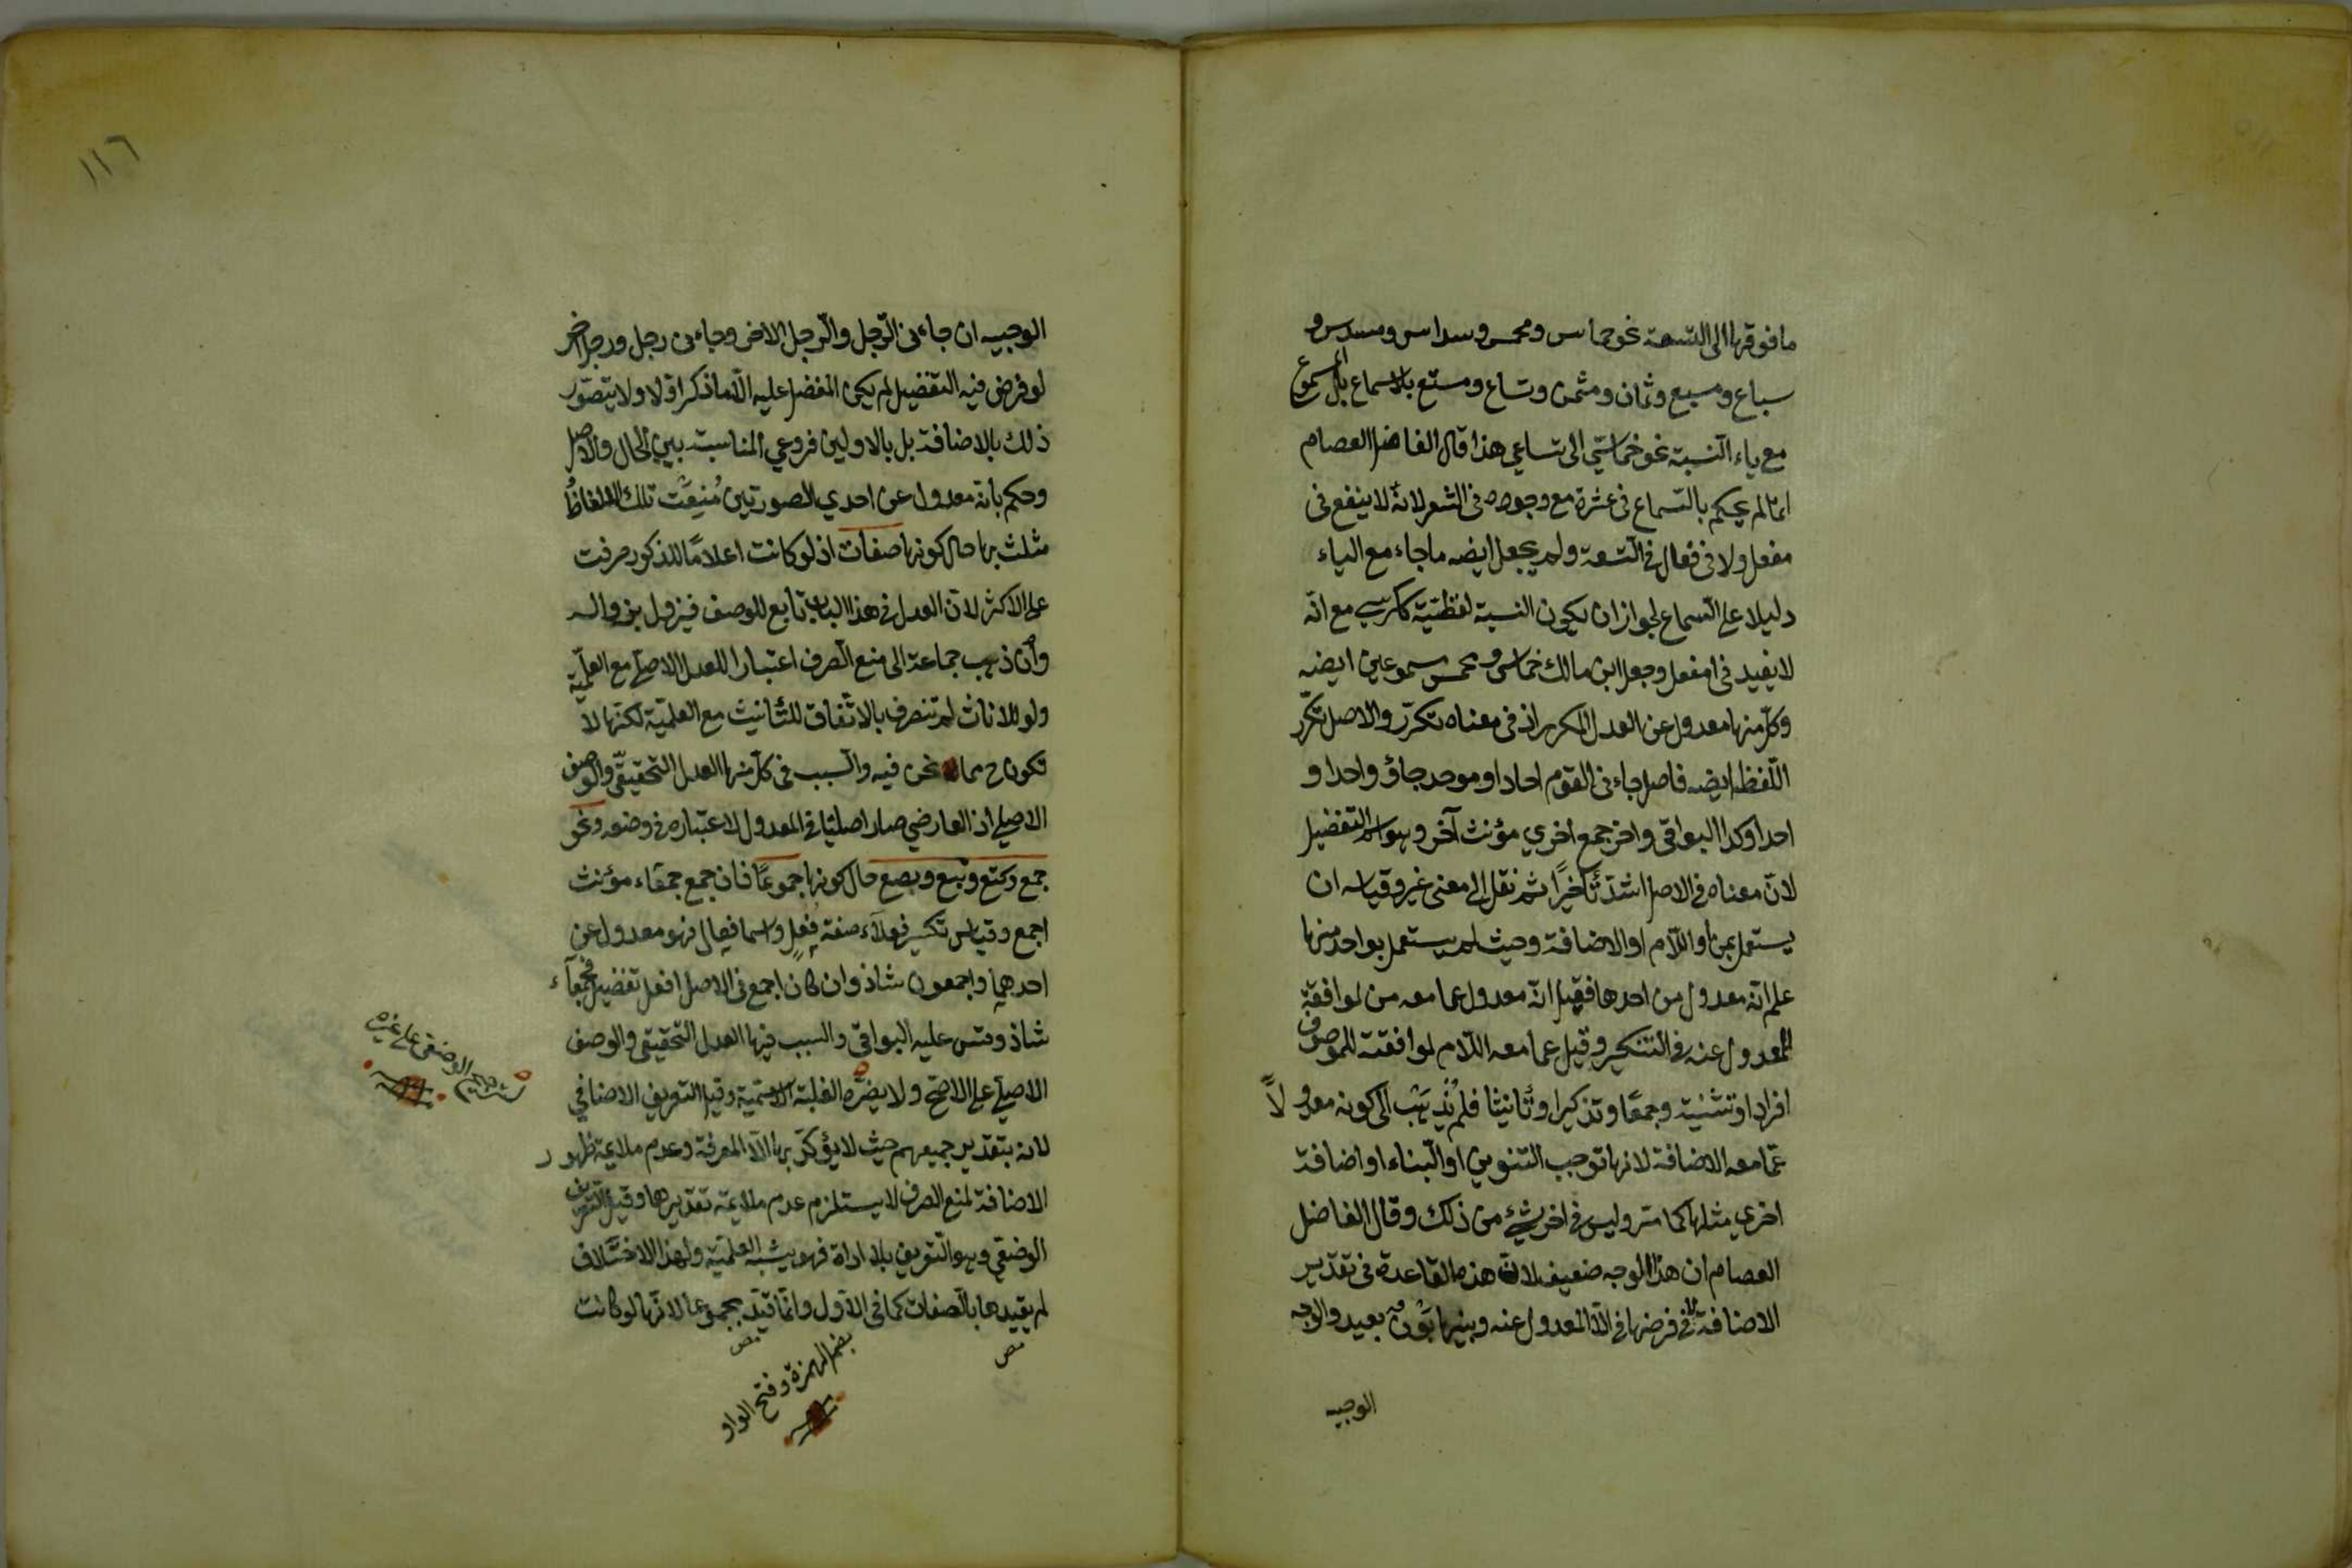 ما فوقها الى التسعة نحو خماس ومخمس وسداس ومسدس و
سباع ومسبع وثمان ومثمن وتساع ومتسع بلا سماع بل المسموع
مع ياء النسبة نحو خماسّي الى تساعي هذا قال الفاضل العصام
انما لم يحكم بالسماع في عشرة مع وجوده في الشعر لانه لا ينفع في
مفعل ولا في فعال في التسعة ولم يجعل ايضه ما جاء مع الياء
دليلا على السماع لجواز ان يكون النسبة لفظيّة ككرسي مع انّه
لا يفيد في مفعل وجعل ابن مالك خماس ومخمس مسموعين ايضه
وكل منها معدول عن العدل المكرر اذ في معناه تكرّر والاصل تكرّر
اللفظ ايضه فاصل جاءني القوم احاد او موحد جاؤ واحدا و
احدا وكذا البواقي واخر جمع اخري مؤنث آخر وهو اسم التفضيل
لانّ معناه في الاصل اشدّ تأخّرًا ثم نقل الى معنى غير وقياسه ان
يستعمل بمن او اللّام او الاضافة وحيث لم يستعمل بواحد منها
علم انّه معدول من احدها فقيل انّه معدول عما معه من لموافقة
المعدول عنه في التنكير وقيل عما معه اللّام لموافقته للموصوف
افرادا وتثنية وجمعًا وتذكيرا وتأنيثا فلم يُذهَب الى كونه معدولاً
عمّا معه الاضافة لانها توجب التنوين او البناء او اضافة
اخري مثلها كما مرّ وليس في اخر شيء من ذلك وقال الفاضل
العصام ان هذا الوجه ضعيف لان هذه القاعدة في تقدير
الاضافة لا في فرضها في المعدول عنه وبينهما بَوْن بعيد والوجه
الوجيه
١١٦
الوجيه ان جاءني الرّجل والرّجل الاخر وجاءني رجل ورجل اخر
لو فرض فيه التفضيل لم يكن المفضل عليه الّا ما ذكر اوّلا ولا يتصوّر
ذلك بالاضافة بل بالاولين فروعي المناسبة بين الحال والاصل
وحكم بانه معدول عن احدي الصورتين مُنِعَت تلك الالفاظُ
مثلث بها حال كونها صفات اذ لو كانت اعلامًا للذكور صرفت
على الاكثر لانّ العدل في هذا الباب تابع للوصف فيزول بزواله
وان ذهب جماعة الى منع الصرف اعتبارا للعدل الاصلي مع العلميّة
ولو للاناث لم تنصرف بالاتّفاق للتأنيث مع العلميّة لكنّها لا
تكون ح مما نحن فيه والسبب في كل منها العدل التحقيقّي والوصف
الاصلي اذ العارضي صار اصليّا في المعدول لاعتباره في وضعه ونحو
جمع وكتع وبتع وبصع حال كونها جموعًا فان جمع جمعاء مؤنث
اجمع وقياس تكسير فعلآء صفة فُعل واسما فعال فهو معدول عن
احدهما واجمعون شاذ وان كان اجمع في الاصل افعل تفضيل فجمعآء
شاذ وقس عليه البواقي والسبب فيها العدل التحقيقي والوصف
الاصلي على الاصّح ولا يضرّه الغلبة الاسميّة وقيل التعريف الاضافي
لانه بتقدير جميعهم حيث لا يؤكّد بها الّا المعرفة وعدم ملايمة ظهور
الاضافة لمنع الصرف لا يستلزم عدم ملايمة تقديرها وقيل التعريف
الوضعي وهو التعريف بلا اداة فهو يشبه العلميّة ولهذا الاختلاف
لم يقيدها بالصفات كما في الاوّل وانّما قيّد بجموعا لانّها لو كانت
الوضعي على غيره
بضم الهمزة وفتح الواو
مص
مص